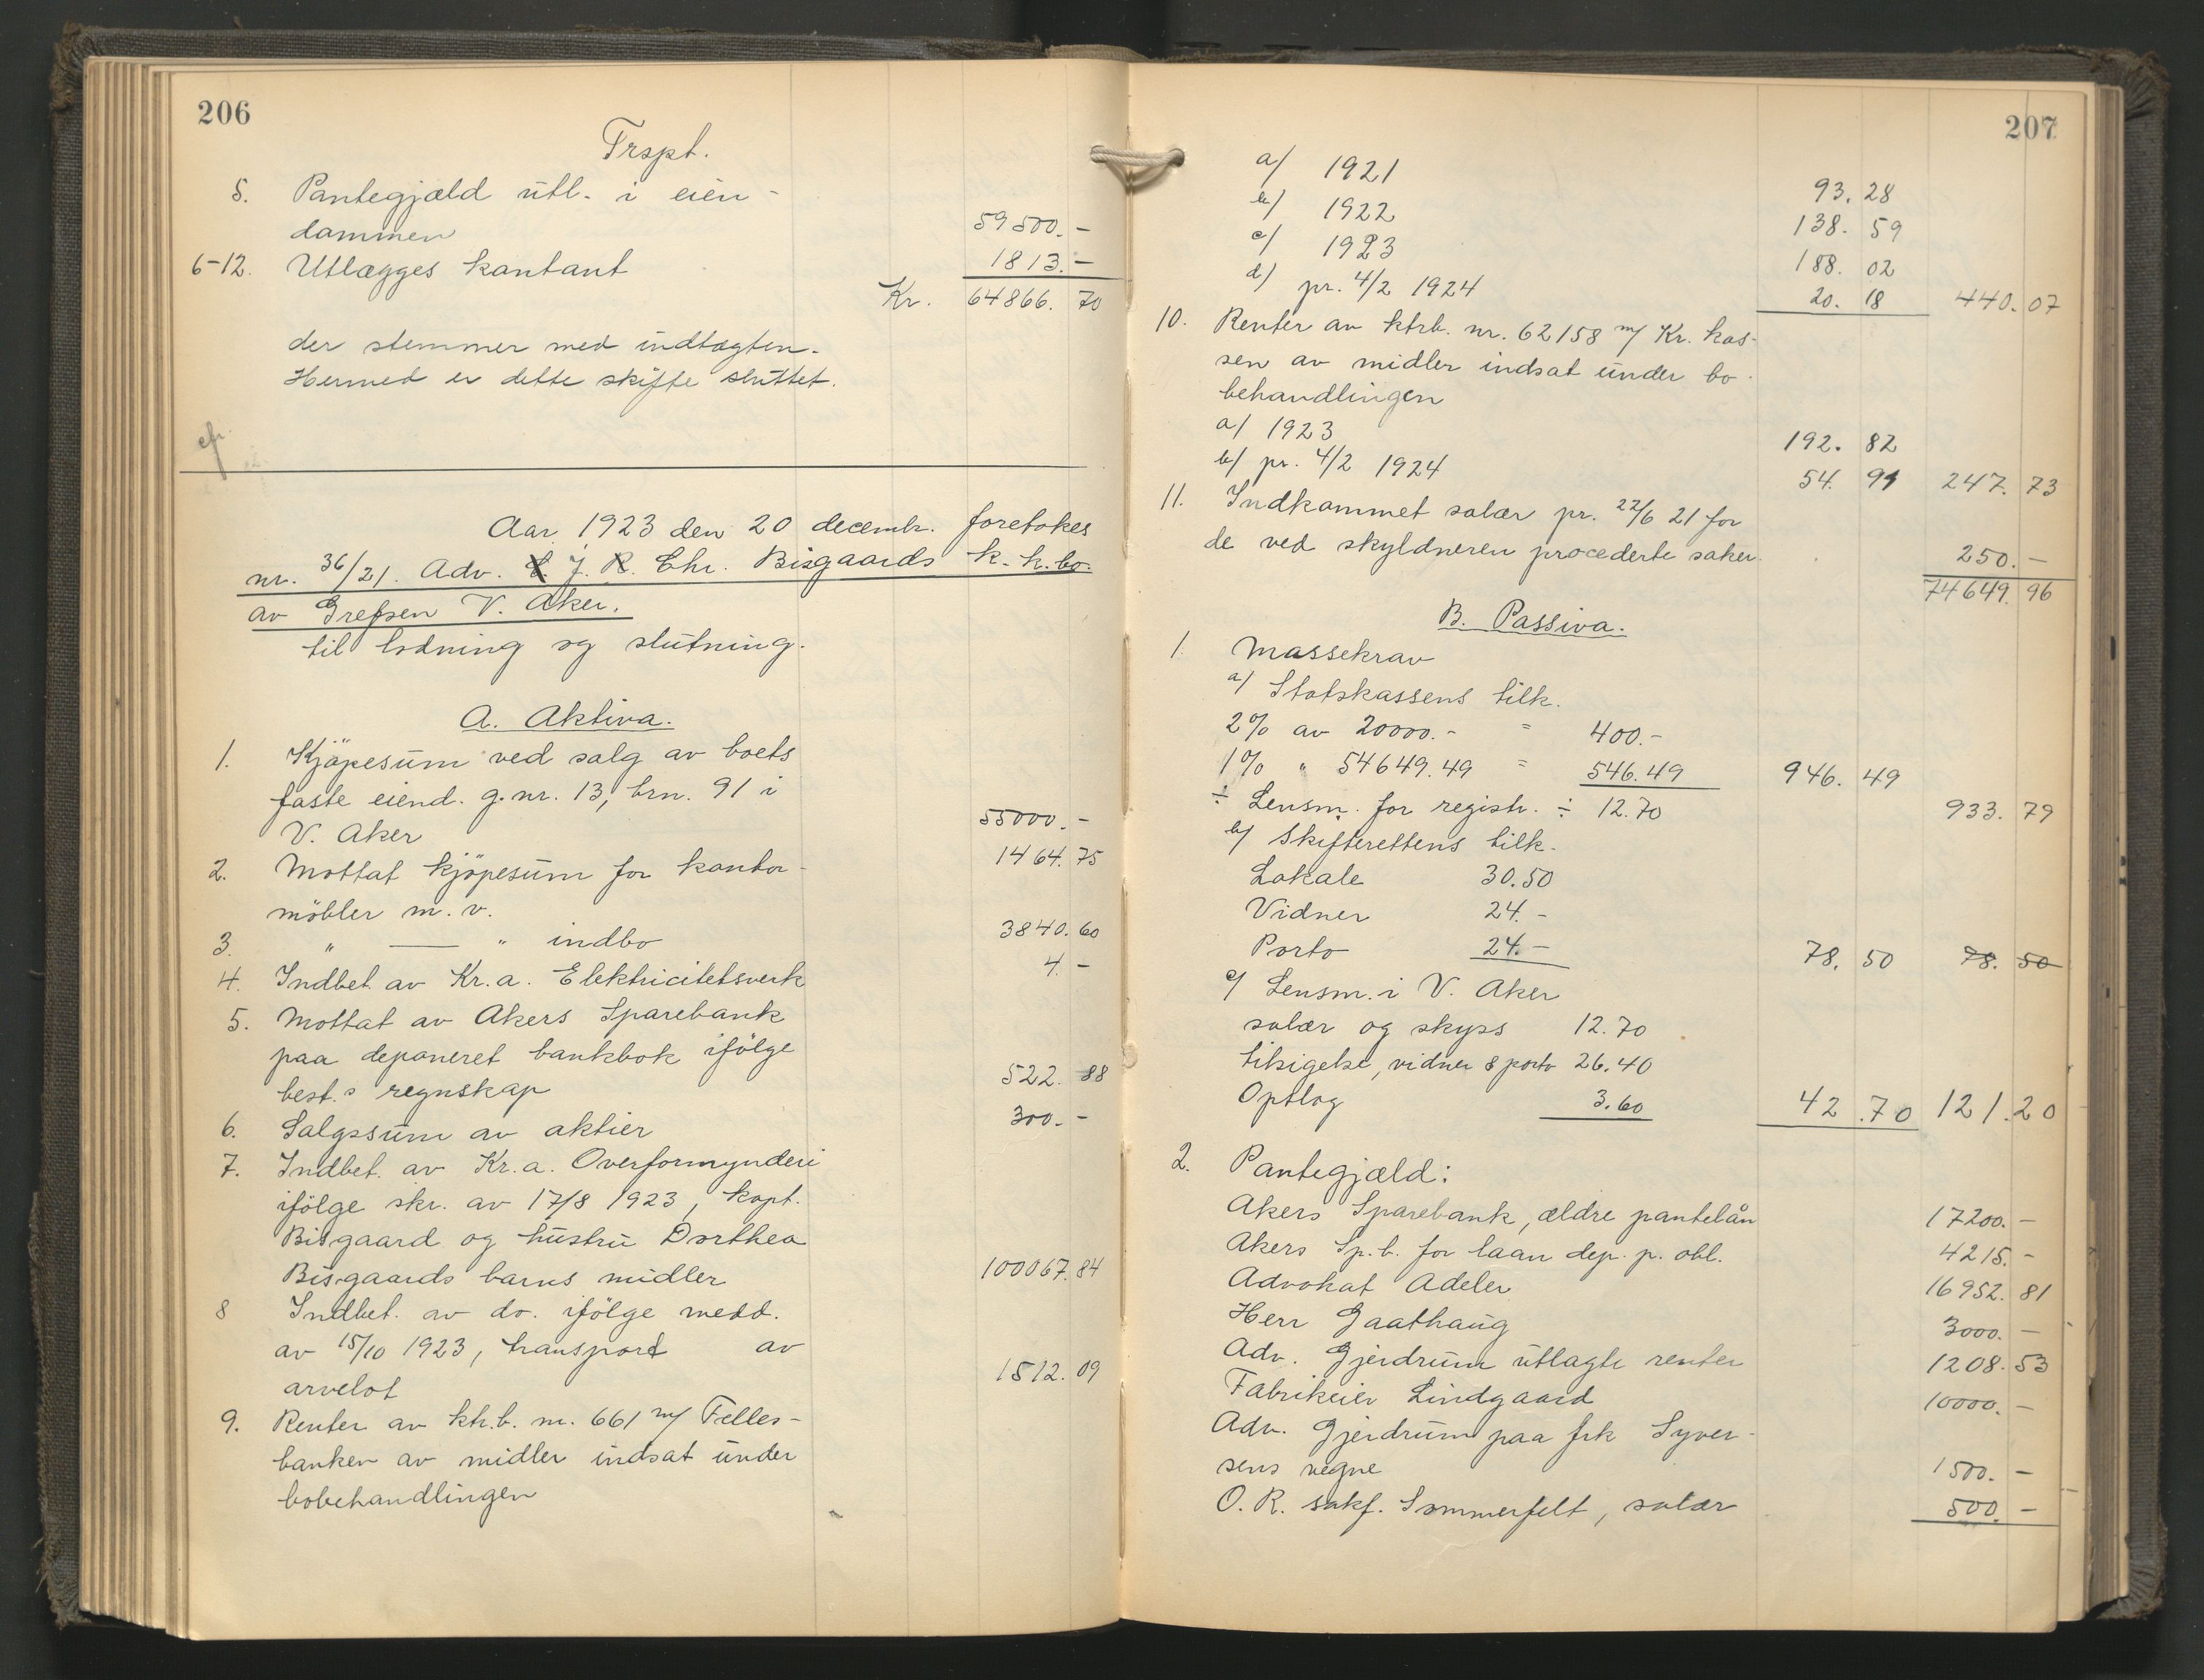 206
Trspt.
5. Pantegjæld utl. i eien-
dammen 59500.-
6-12. Utlægges kontant 1813.-
Kr. 64866.70
der stemmer med indtægten.
Hermed er dette skifte sluttet.
Aar 1923 den 20 decembr. foretokes
nr. 36/21. Adv. J. Chr. Bisgaards k.k.bo.
av Grefsen V. Aker.
til lodning og slutning.
A. Aktiva.
1. Kjöpesum ved salg av boets
faste eiend. g.nr. 13, brn. 91 i
V. Aker 55000.-
2. Mottat kjöpesum for kontor-
möbler m.v. 1464.75
3. " — " indbo 3840.60
4. Indbet. av Kr.a. Elektricitetsverk 4.-
5. Mottat av Akers Sparebank
paa deponeret bankbok ifölge
best.s regnskap 522.88
6. Salgssum av aktier 300.-
7. Indbet. av Kr.a. Overformynderi
ifölge skr. av 17/8 1923, kapt.
Bisgaard og hustru Dorthea
Bisgaards barns midler 10067.84
8 Indbet. av do. ifölge medd.
av 15/10 1923, transport av
arvelot 1512.09
9. Renter av ktr.b. nr. 661 m/ Felles-
banken av midler indsat under
bobehandlingen
207
a/ 1921 93.28
b/ 1922 138.59
c/ 1923 188.02
d/ pr. 4/2 1924 20.18 440.07
10. Renter av ktrb. nr. 62158 m/ Kr. kas-
sen av midler indsat under bo-
behandlingen
a/ 1923 192.82
b/ pr. 4/2 1924 54.91 247.73
11. Indkommet salær pr. 22/6 21 for
de ved skyldneren procederte saker. 250.-
74649.96
B. Passiva.
1. Massekrav
a/ Statskassens tilk.
2% av 20000.- = 400.-
1% " 54649.49 = 546.49 946.49
÷ Lensm. for registr. ÷ 12.70 933.79
b/ Skifterettens tilk.
Lokale 30.50
Vidner 24.-
Porto 24.- 78.50 78.50
c/ Lensm. i V. Aker
salær og skyss 12.70
tilsigelse, vidner & porto 26.40
Opslag 3.60 42.70 121.20
2. Pantegjæld:
Akers Sparebank, ældre pantelån 17200.-
Akers Sp.b. for laan dep. p. obl. 4215.-
Advokat Adeler 16952.81
Herr Gaathaug 3000.-
Adv. Gjerdrum utlagte renter 1208.53
Fabrikeier Lindgaard 10000.-
Adv. Gjerdrum paa frk Syver-
sens vegne 1500.-
O.R. sakf. Sommerfelt, salær 500.-